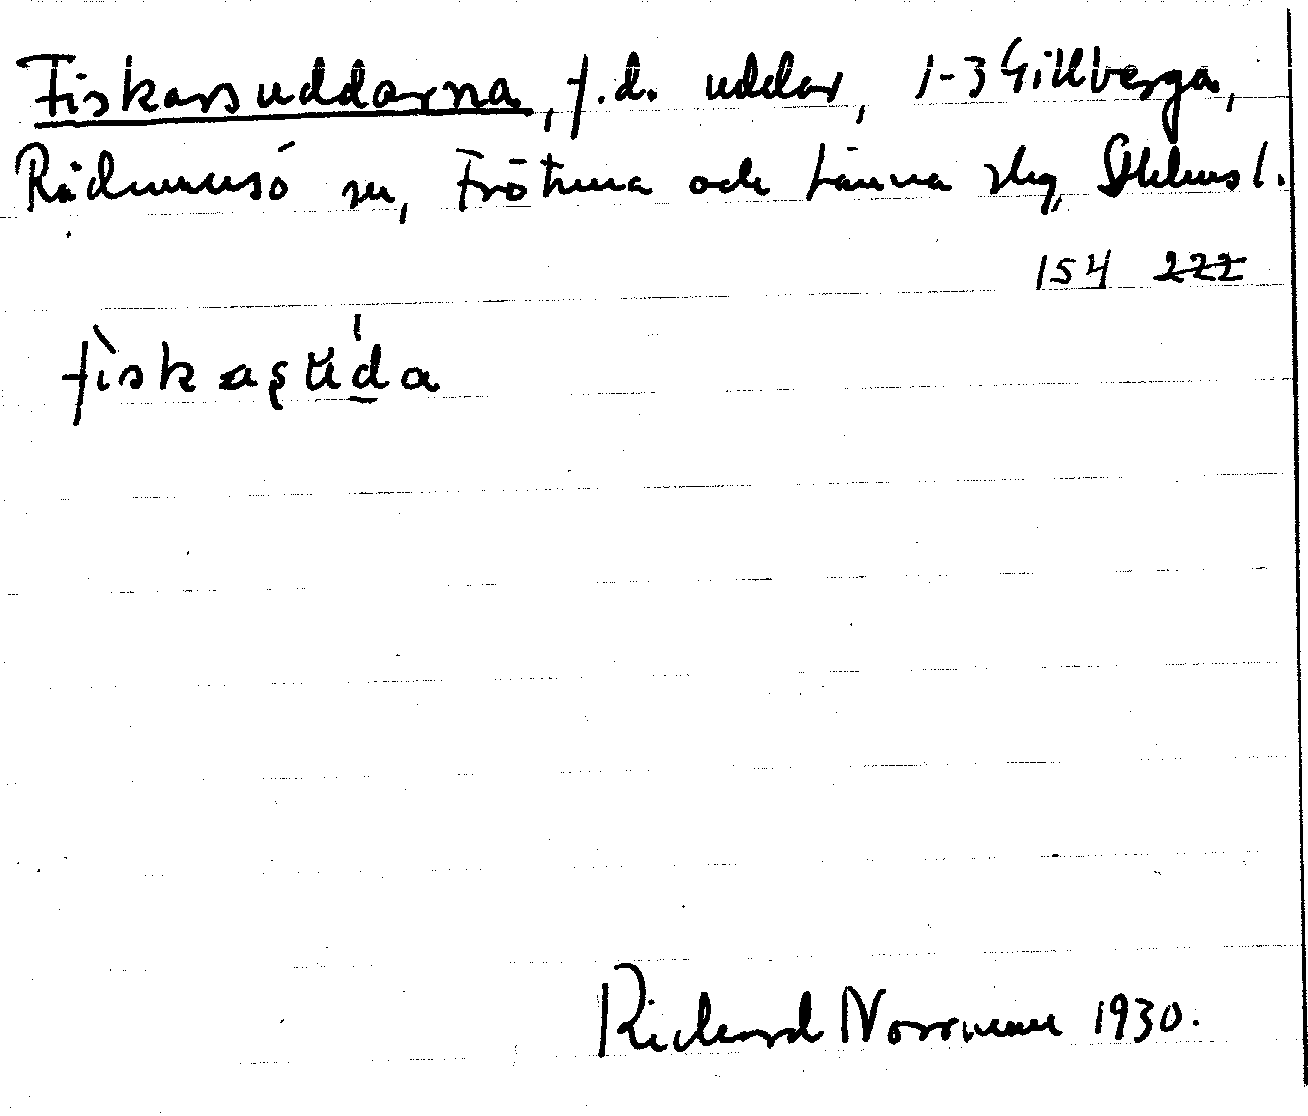 Fiskarsuddarna, f.d. uddar, 1-3 Gillberga,
Rådmansö sn, Frötuna och Länna slg, Sthlms l.
154 ~~222~~
Richard Norrman 1930.